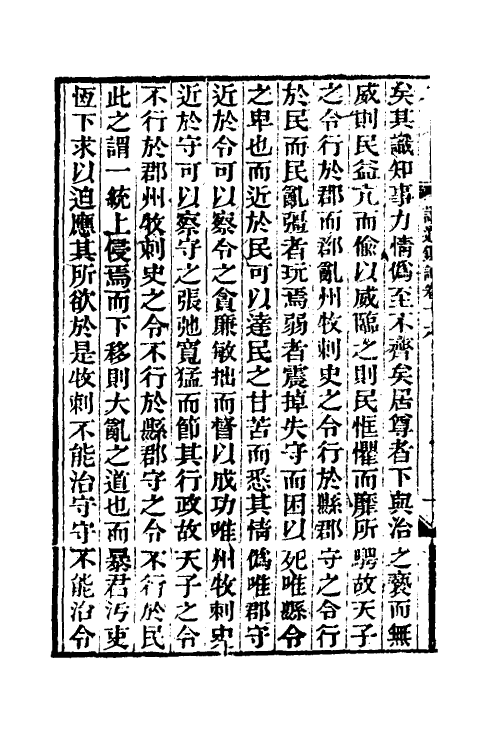 讀通鑑論卷十六
矣其識知事力情僞至不齊矣居尊者下與治之褻而無
威則民益亢而偷以威臨之則民恇懼而靡所騁故天子
之令行於郡而郡亂州牧刺史之令行於縣郡守之令行
於民而民亂彊者玩焉弱者震掉失守而困以死唯縣令
之卑也而近於民可以達民之甘苦而悉其情僞唯郡守
近於令可以察令之貪廉敏拙而督以成功唯州牧刺史
近於守可以察守之張弛寬猛而節其行政故天子之令
不行於郡州牧刺史之令不行於縣郡守之令不行於民
此之謂一統上侵焉而下移則大亂之道也而暴君污吏
恆下求以迫應其所欲於是牧刺不能治守守不能治令